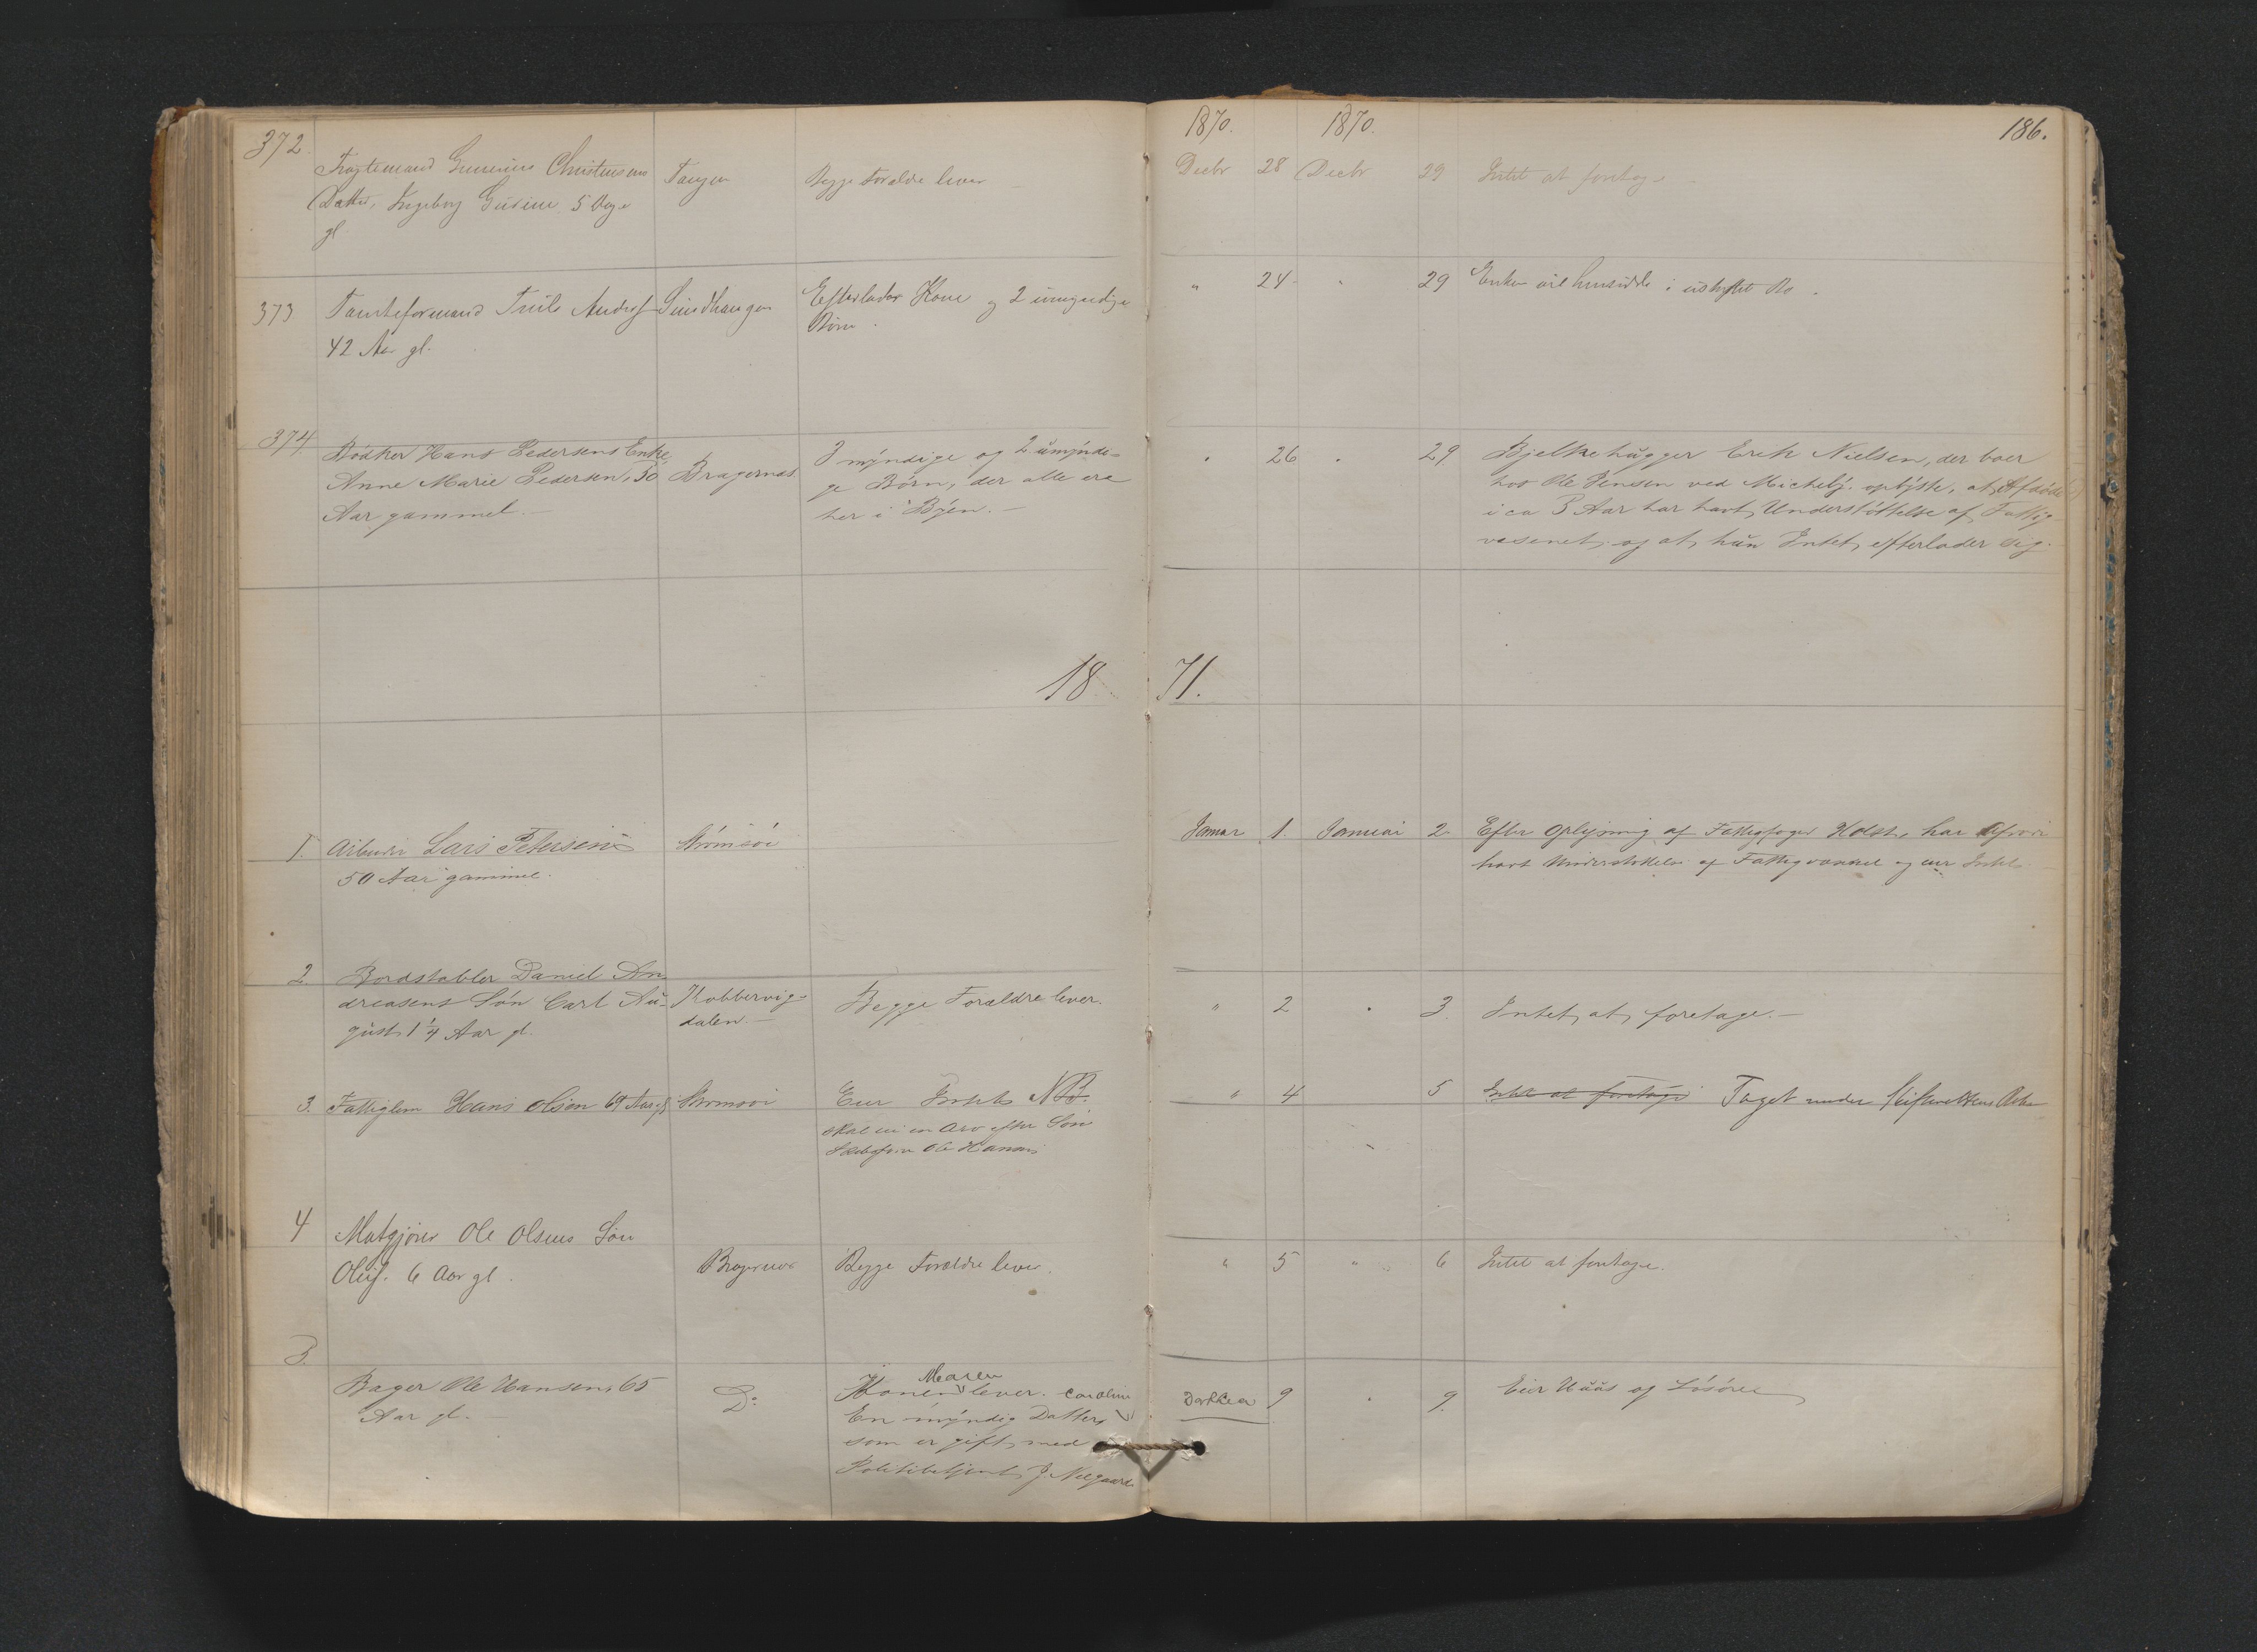 1870. 1870. 186.
372. Fragtemand Gunerius Christensens
Datter, Ingeborg Gusine 5 Dage
gl
Tangen
Begge Forældre lever
Decbr 28 Decbr 29 Intet at foretage
373 Tomteformand Truls Anders
42 Aar gl.
Sundhaugen
Efterlader Kone og 2 umyndige
Børn.
" 24 " 29 Enken vil hensidde i uskiftet Bo.
374 Bødker Hans Pedersens Enke
Anne Marie Pedersen, 50
Aar gammel.
Bragernæs
3 myndige og 2 umyndi-
ge Børn, der alle ere
her i Byen.
" 26 " 29. Bjelkehugger Erik Nielsen, der boer
hos Ole Jensen ved oplyste, at Afdøde
i ca 3 Aar har havt Understøttelse af Fattig-
væsenet, og at hun Intet efterlader sig.
1871.
1. Arbeider Lars Petersen
50 Aar gammel.
Strømsøe
Januar 1. Januar 2. Efter Oplysning af Fattigfoged Holst, har Afdøde
havt Understøttelse af Fattigvæsenet og eier Intet
2. Bordstabler Daniel An-
dreasens Søn Carl Au-
gust 1 1/4 Aar gl.
Kobbervig-
dalen.
Begge Forældre lever.
" 2 " 3. Intet at foretage.
3. Fattiglem Hans Olsen 69 Aar gl
Strømsøe
Eier Intet NB.
skal eie en Arv efter Søn
Ole Hansen
" 4 5 Intet at foretage Taget under Skifterettens Beh
4 Matgjører Ole Olsens Søn
Oluf. 6 Aar gl.
Bragernæs
Begge Forældre lever.
" 5 " 6 Intet at foretage.
5. Bager Ole Hansen, 65
Aar gl.
Do
Maren
Konen lever. Caroline
En myndig Datter,
som er gift med
Politibetjent J. Nelgaard
9 " 9. Eier Huus og Løsøre